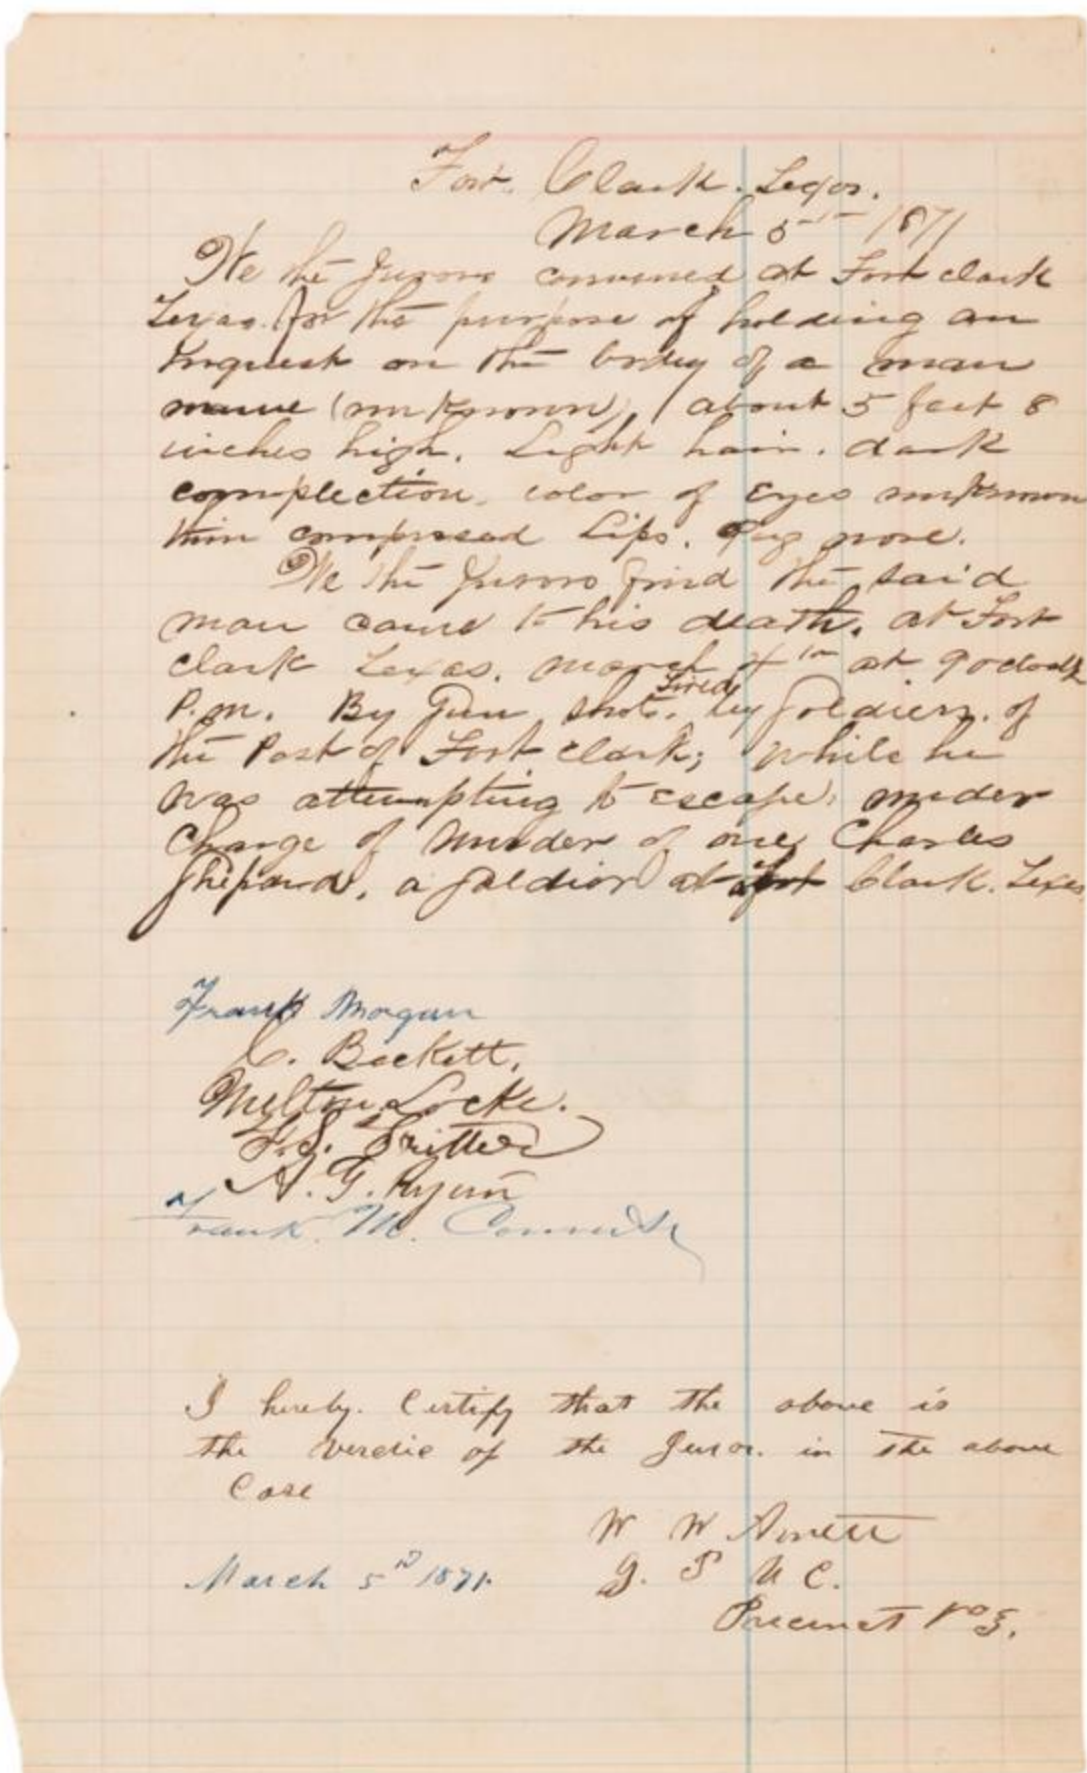 Fort. Clark. Texas.
March 5th 1871
We the Jurors convened at Fort Clark
Texas. for the purpose of holding an
Inquest on the body of a man
name (unknown) about 5 feet 8
inches high. Light hair. dark
complection. color of Eyes unknown
thin compressed Lips. Pug nose.
We the Jurors find the said
man came to his death. at Fort
Clark Texas. March 4th at 9 oclock
P.m. By Gun shot. fired by Soldiers. of
the Post of Fort Clark; while he
was attempting to escape, under
Charge of Murder of one Charles
Shepard, a Soldier at Fort Clark. Texas
Frank Morgan
C. Beckett.
Milton Locke.
F.S. Fritter
A. G. Ryan
Frank. M.
I hereby. Certify that the above is
the verdic of the Juror. in the above
Case
W W Arnett
J. P U C.
March 5th 1871.
Precinct No 3.